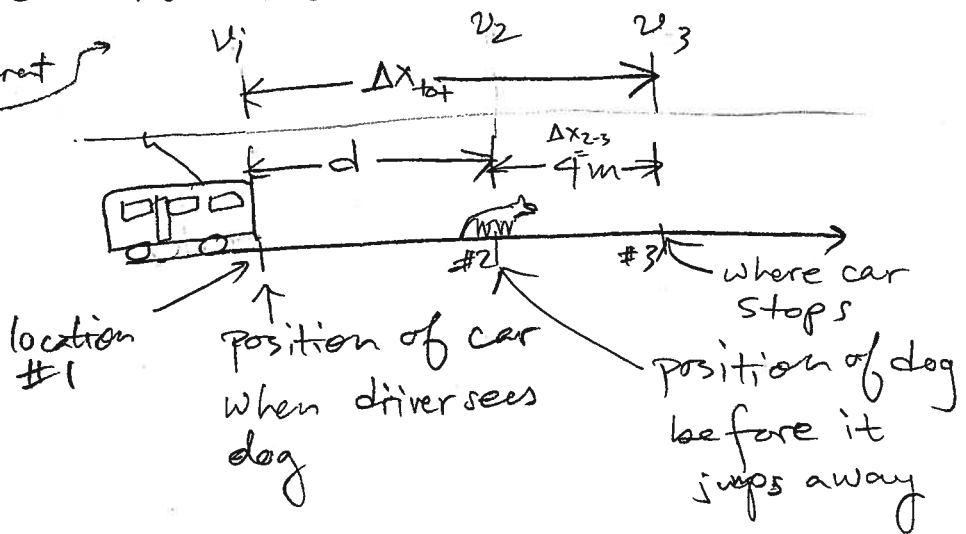 v₁ v₂ v₃
Δx_tot
d
Δx₂₋₃
=
4m
#2 #3
where car
stops
location
#1
position of car
when driver sees
dog
position of dog
before it
jumps away